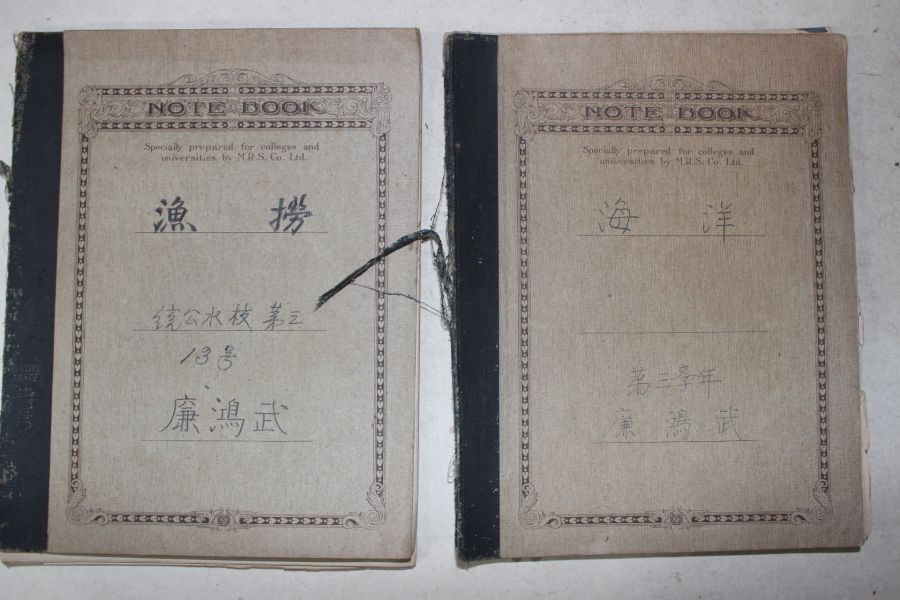 NOTE BOOK
Specially prepared for colleges and
universities by M.R.S. Co. Ltd.
漁 撈
统公水校 第三
13号
廉鴻武
NOTE BOOK
Specially prepared for colleges and
universities by M.R.S. Co. Ltd.
海 洋
第三学年
廉鴻武